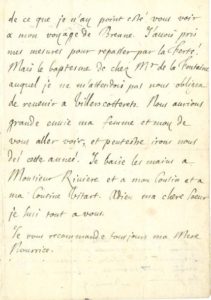 de ce que je n'ay point esté vous voir
a mon voyage de Breane. J'avois pris
mes mesures pour repasser par la ferté
Mais le baptesme de chez Mr de la Fontaine
auquel je ne m'attendois pas nous obligea
de revenir a Villercotterete. Nous aurions
grande envie ma femme et moy de
vous aller voir, et peutestre irons nous
dés cete année. Je baise les mains a
Monsieur Riviere et a mon Cousin et a
ma Cousine Vitart. Adieu ma chere Soeur
je suis tout a vous.
Je vous recommande tousjours ma Mere
Nourrice.